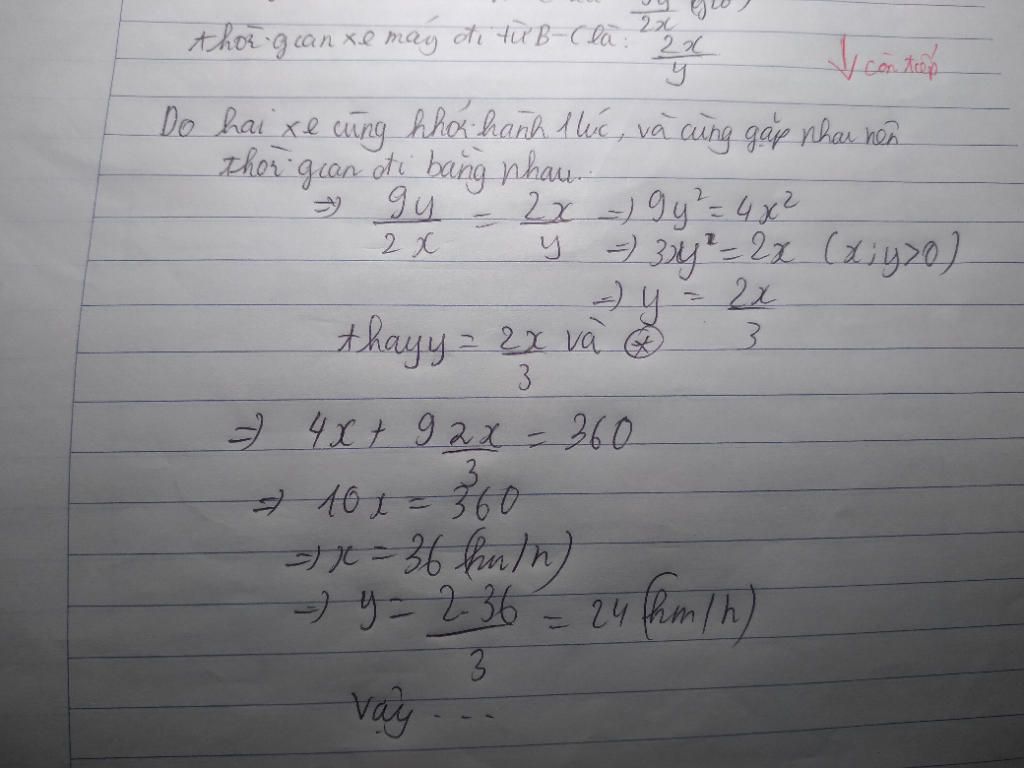 9y/2x giờ)
thời gian xe máy đi từ B-C là: 2x/y
còn tiếp
Do hai xe cùng khởi hành 1 lúc, và cùng gặp nhau nên
thời gian đi bằng nhau.
=> 9y/2x = 2x/y => 9y² = 4x²
=> 3y = 2x (x;y>0)
=> y = 2x/3
thay y = 2x/3 và (*)
=> 4x + 9 2x/3 = 360
=> 10x = 360
=> x = 36 (km/h)
=> y = 2.36/3 = 24 (km/h)
Vậy ...